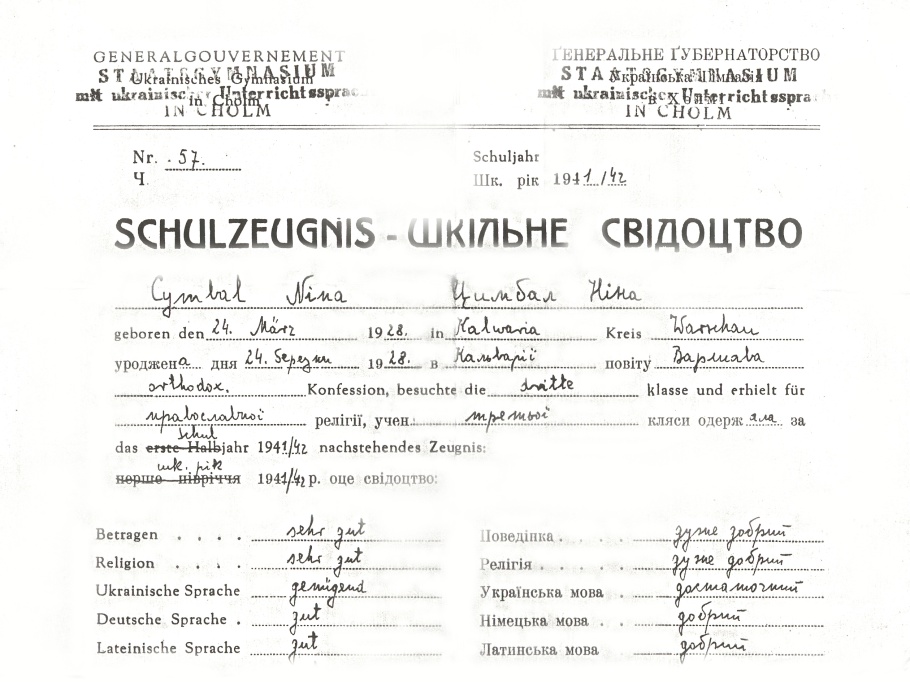 GENERALGOUVERNEMENT ҐЕНЕРАЛЬНЕ ҐУБЕРНАТОРСТВО
STAATSGYMNASIUM STAATSGYMNASIUM
Ukrainisches Gymnasium Українська Гімназія
mit ukrainischer Unterrichtssprache mit ukrainischer Unterrichtsspra
in Cholm в Холмі
IN CHOLM IN CHOLM
Nr. 57. Schuljahr
Ч. Шк. рік 1941/42
SCHULZEUGNIS - ШКІЛЬНЕ СВІДОЦТВО
Cymbal Nina Цимбал Ніна
geboren den 24. März 1928. in Kalwaria Kreis Warschau
уроджена дня 24. березня 1928. в Кальварії повіту Варшава
orthodox. Konfession, besuchte die dritte klasse und erhielt für
православної релігії, учен. третьої кляси одержала за
schul
das erste Halbjahr 1941/42 nachstehendes Zeugnis:
шк. рік
перше півріччя 1941/42 р. оце свідоцтво:
Betragen . . . . sehr gut Поведінка . . . . дуже добрий
Religion . . . . sehr gut Релігія . . . . . дуже добрий
Ukrainische Sprache genügend Українська мова . достаточний
Deutsche Sprache . gut Німецька мова . . добрий
Lateinische Sprache gut Латинська мова добрий